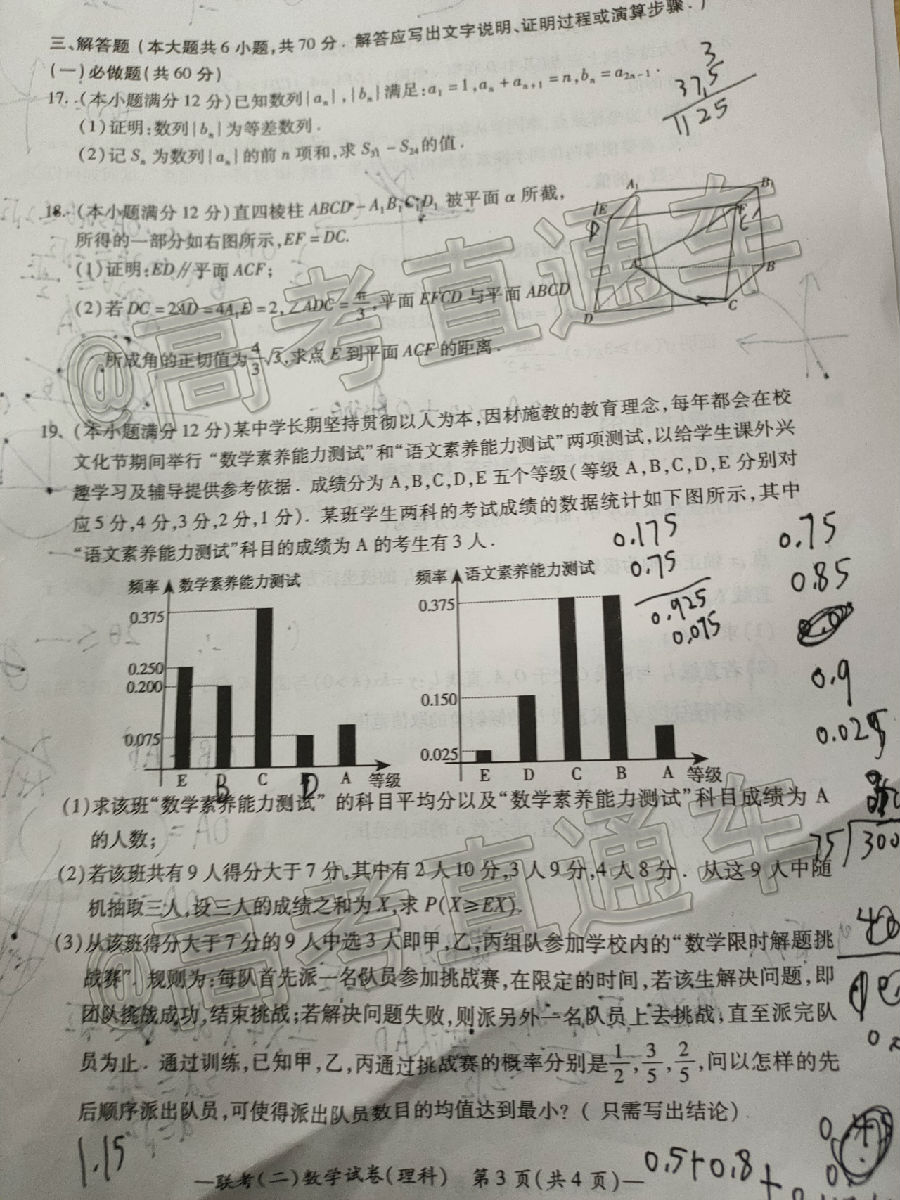 三、解答题(本大题共6小题,共70分.解答应写出文字说明、证明过程或演算步骤.)
(一)必做题(共60分)
17.(本小题满分12分)已知数列{aₙ},{bₙ}满足:a₁=1,aₙ+aₙ₊₁=n,bₙ=a₂ₙ₋₁.
(1)证明:数列{bₙ}为等差数列.
(2)记Sₙ为数列{aₙ}的前n项和,求S₃₁-S₂₄的值.
3
37.5
1125
18.(本小题满分12分)直四棱柱ABCD-A₁B₁C₁D₁被平面α所截,
所得的一部分如右图所示,EF=DC.
(1)证明:ED∥平面ACF;
(2)若DC=2AD=4A₁E=2,∠ADC=π/3,平面EFCD与平面ABCD
所成角的正切值为4/3√3,求点E到平面ACF的距离.
A₁ B₁
E F
A B
D C
19.(本小题满分12分)某中学长期坚持贯彻以人为本,因材施教的教育理念,每年都会在校
文化节期间举行“数学素养能力测试”和“语文素养能力测试”两项测试,以给学生课外兴
趣学习及辅导提供参考依据.成绩分为A,B,C,D,E五个等级(等级A,B,C,D,E分别对
应5分,4分,3分,2分,1分).某班学生两科的考试成绩的数据统计如下图所示,其中
“语文素养能力测试”科目的成绩为A的考生有3人.
0.175
0.75
0.925
0.075
0.75
0.85
0.9
0.025
频率 数学素养能力测试
0.375
0.250
0.200
0.075
E B C D A 等级
频率 语文素养能力测试
0.375
0.150
0.025
E D C B A 等级
(1)求该班“数学素养能力测试”的科目平均分以及“数学素养能力测试”科目成绩为A
的人数;
75 300
(2)若该班共有9人得分大于7分,其中有2人10分,3人9分,4人8分.从这9人中随
机抽取三人,设三人的成绩之和为X,求P(X≥EX).
(3)从该班得分大于7分的9人中选3人即甲,乙,丙组队参加学校内的“数学限时解题挑
战赛”.规则为:每队首先派一名队员参加挑战赛,在限定的时间,若该生解决问题,即
团队挑战成功,结束挑战;若解决问题失败,则派另外一名队员上去挑战,直至派完队
员为止.通过训练,已知甲,乙,丙通过挑战赛的概率分别是1/2,3/5,2/5,问以怎样的先
后顺序派出队员,可使得派出队员数目的均值达到最小?(只需写出结论)
40
1.15
0.5+0.8+
—联考(二)数学试卷(理科) 第3页(共4页)—
@高考直通车
@高考直通车